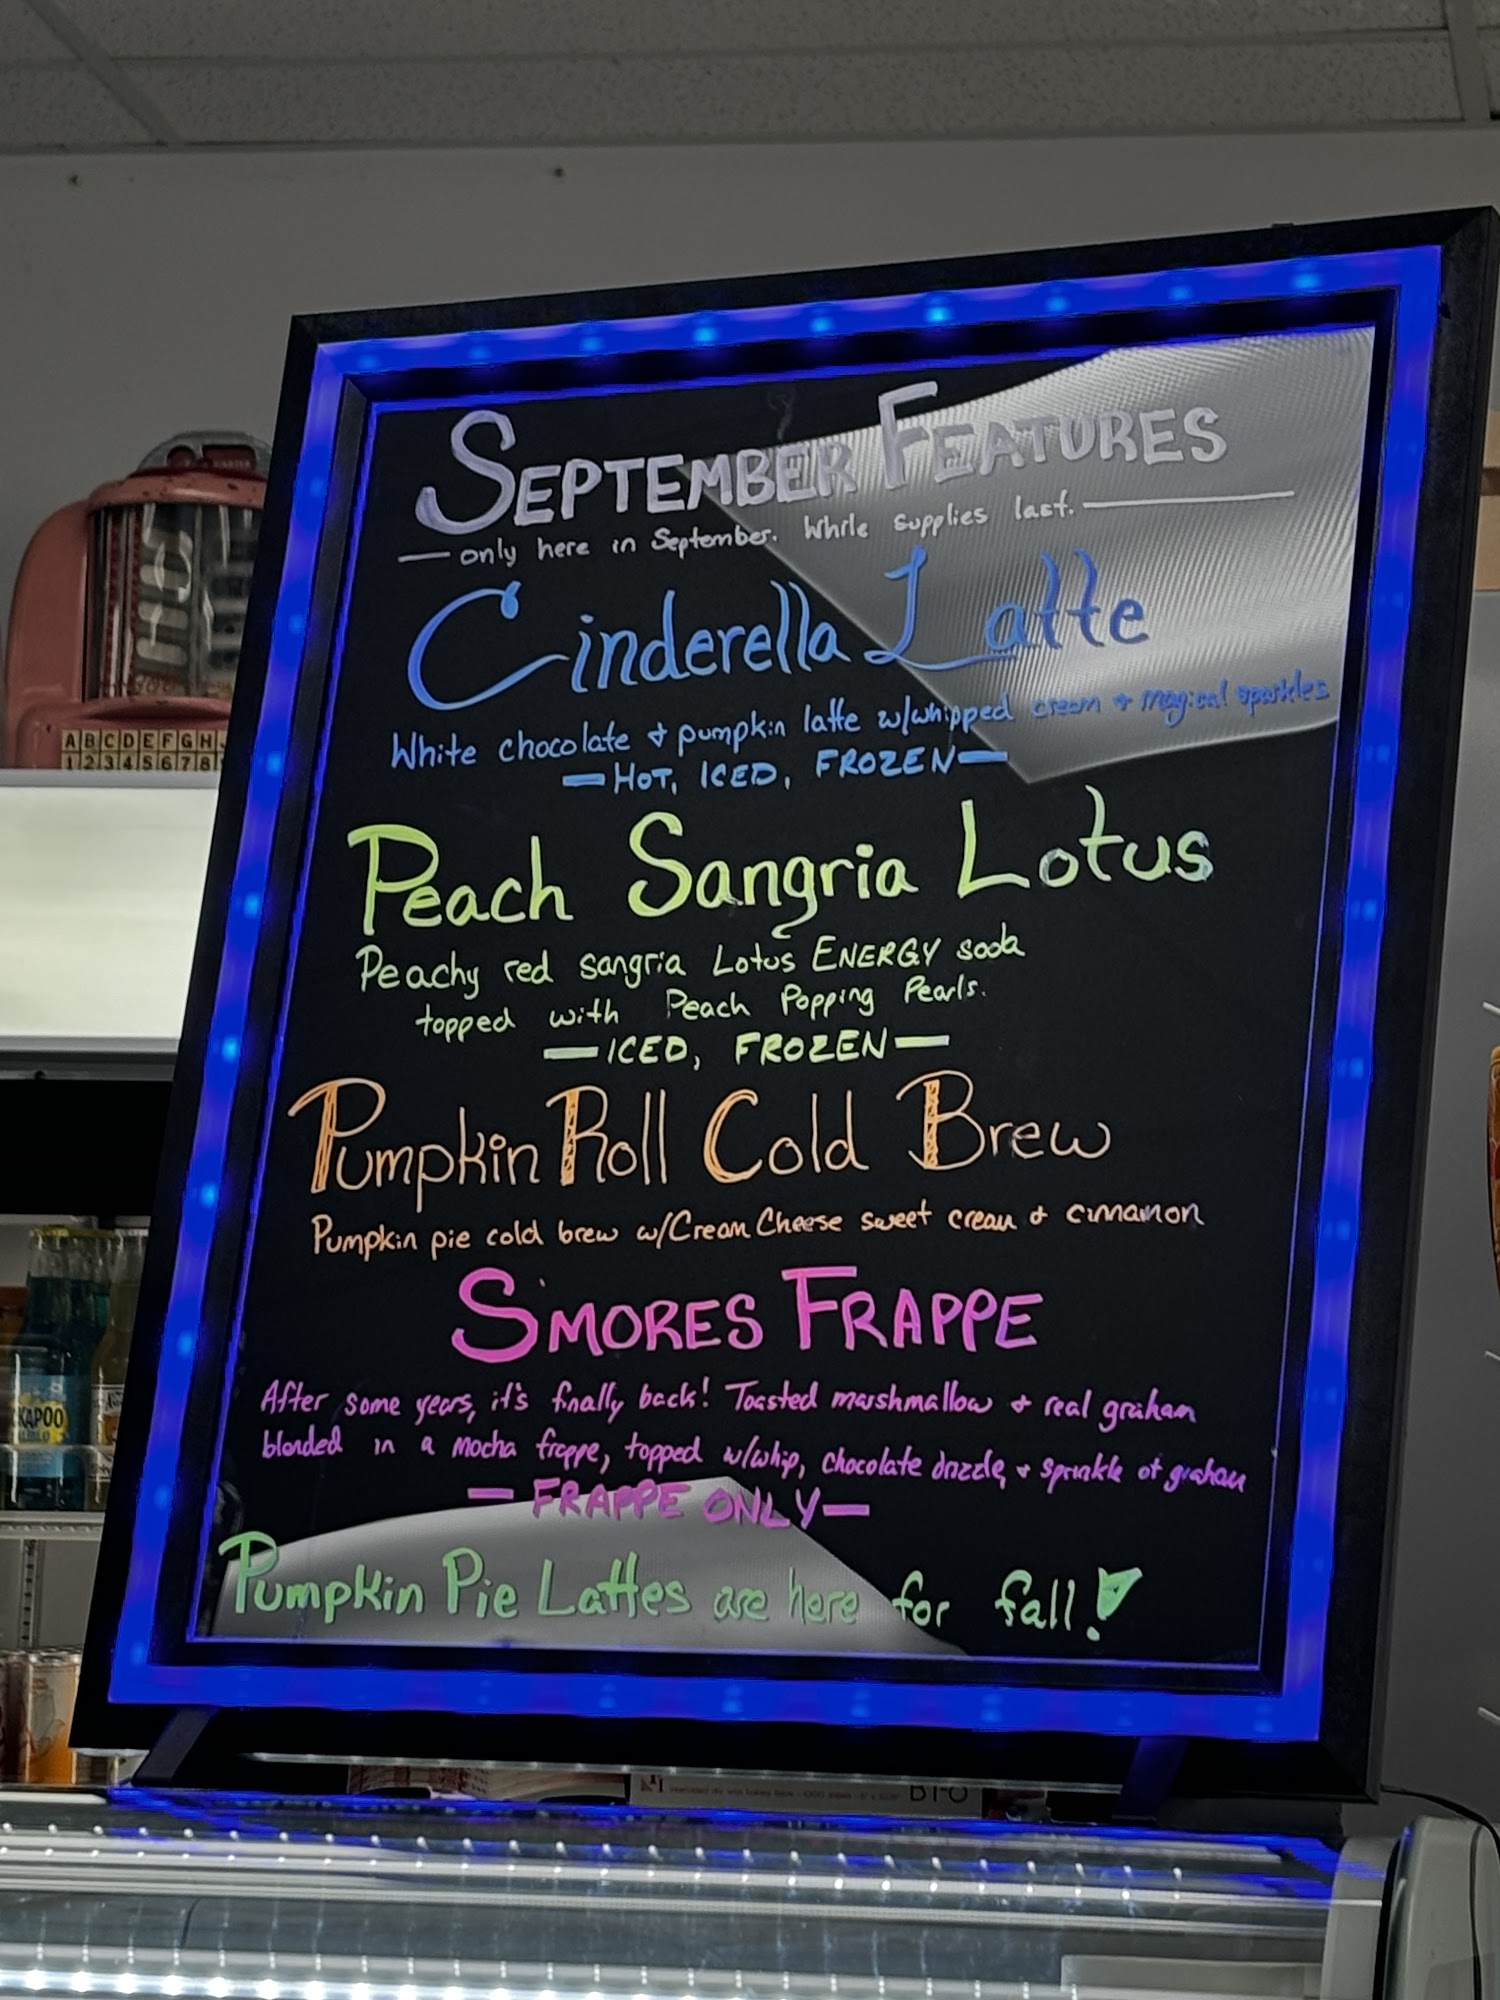 SEPTEMBER FEATURES
only here in September. While supplies last.
Cinderella Latte
White chocolate + pumpkin latte w/whipped cream + magical sparkles
HOT, ICED, FROZEN
Peach Sangria Lotus
Peachy red sangria Lotus ENERGY soda
topped with Peach Popping Pearls.
ICED, FROZEN
Pumpkin Roll Cold Brew
Pumpkin pie cold brew w/Cream Cheese sweet cream + cinnamon
S'MORES FRAPPE
After some years, it's finally back! Toasted marshmallow + real graham
blended in a mocha frappe, topped w/whip, chocolate drizzle, + sprinkle of graham
FRAPPE ONLY
Pumpkin Pie Lattes are here for fall!
A B C D E F G H
1 2 3 4 5 6 7 8
KAPOO